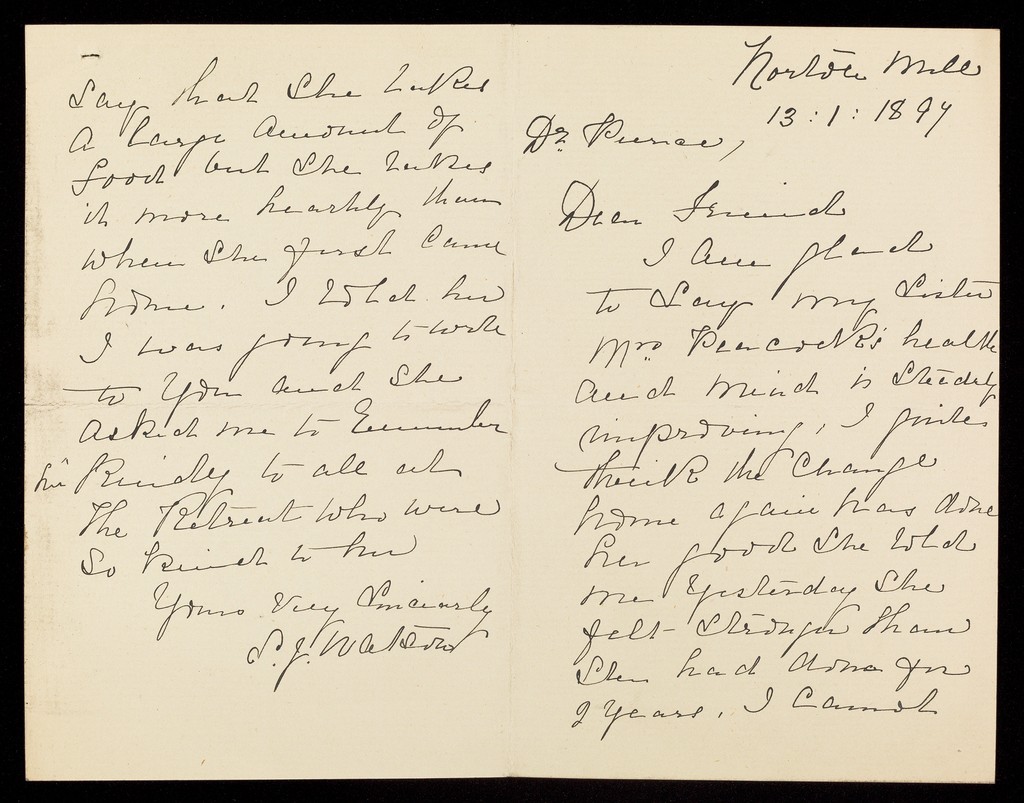 Norton Mill
13:1:1897
Dr. Pierce,
Dear Friend
I am glad
to Say my Sister
Mrs Peacock's health
and mind is Steadily
improving, I quite
think the Change
home again has done
her good She told
me Yesterday She
felt Stronger than
She had done for
2 Years. I Cannot
Say that She takes
A large Amount of
food but She takes
it more heartily than
when She first Came
home. I told her
I was going to write
to You and She
Asked me to Remember
her Kindly to all at
The Retreat who were
So kind to her
Yours Very Sincerely
S. J. Watson